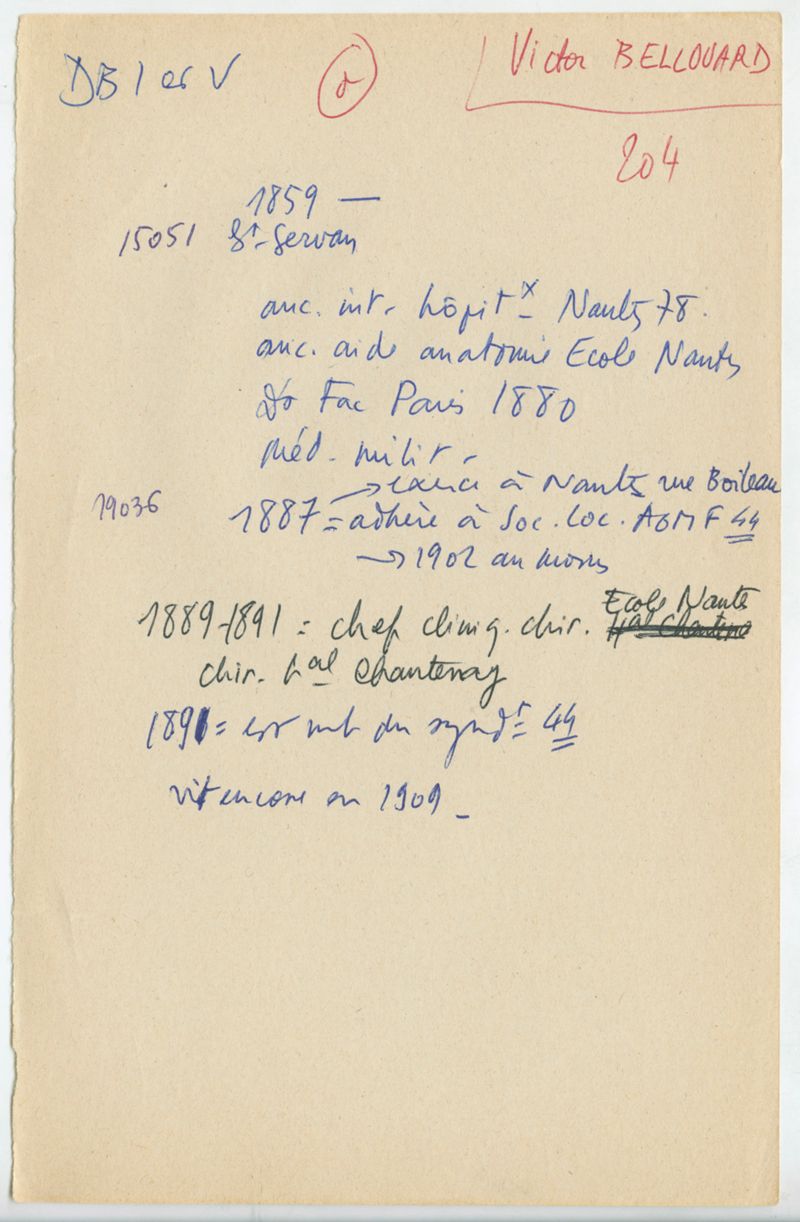 DB I et V
Victor BELLOUARD
204
1859 —
15051 St-Servan
anc. int. hôpitx Nantes 78.
anc. aide anatomie Ecole Nantes
Dr Fac Paris 1880
Méd. milit.
→ exerce à Nantes rue Boileau
19036 1887 = adhère à Soc. loc. AGMF 44
→ 1902 au moins
1889-1891 = chef cliniq. chir. Ecole Nantes
chir. hal Chantenay
1891 = est mb du syndt 44
vit encore en 1909 –